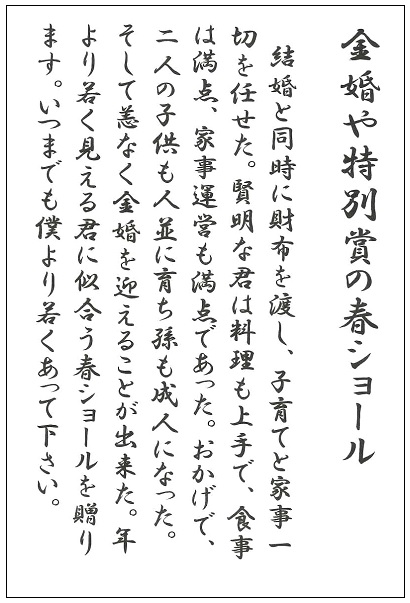 金婚や特別賞の春ショール
結婚と同時に財布を渡し、子育てと家事一
切を任せた。賢明な君は料理も上手で、食事
は満点、家事運営も満点であった。おかげで、
二人の子供も人並に育ち孫も成人になった。
そして恙なく金婚を迎えることが出来た。年
より若く見える君に似合う春ショールを贈り
ます。いつまでも僕より若くあって下さい。